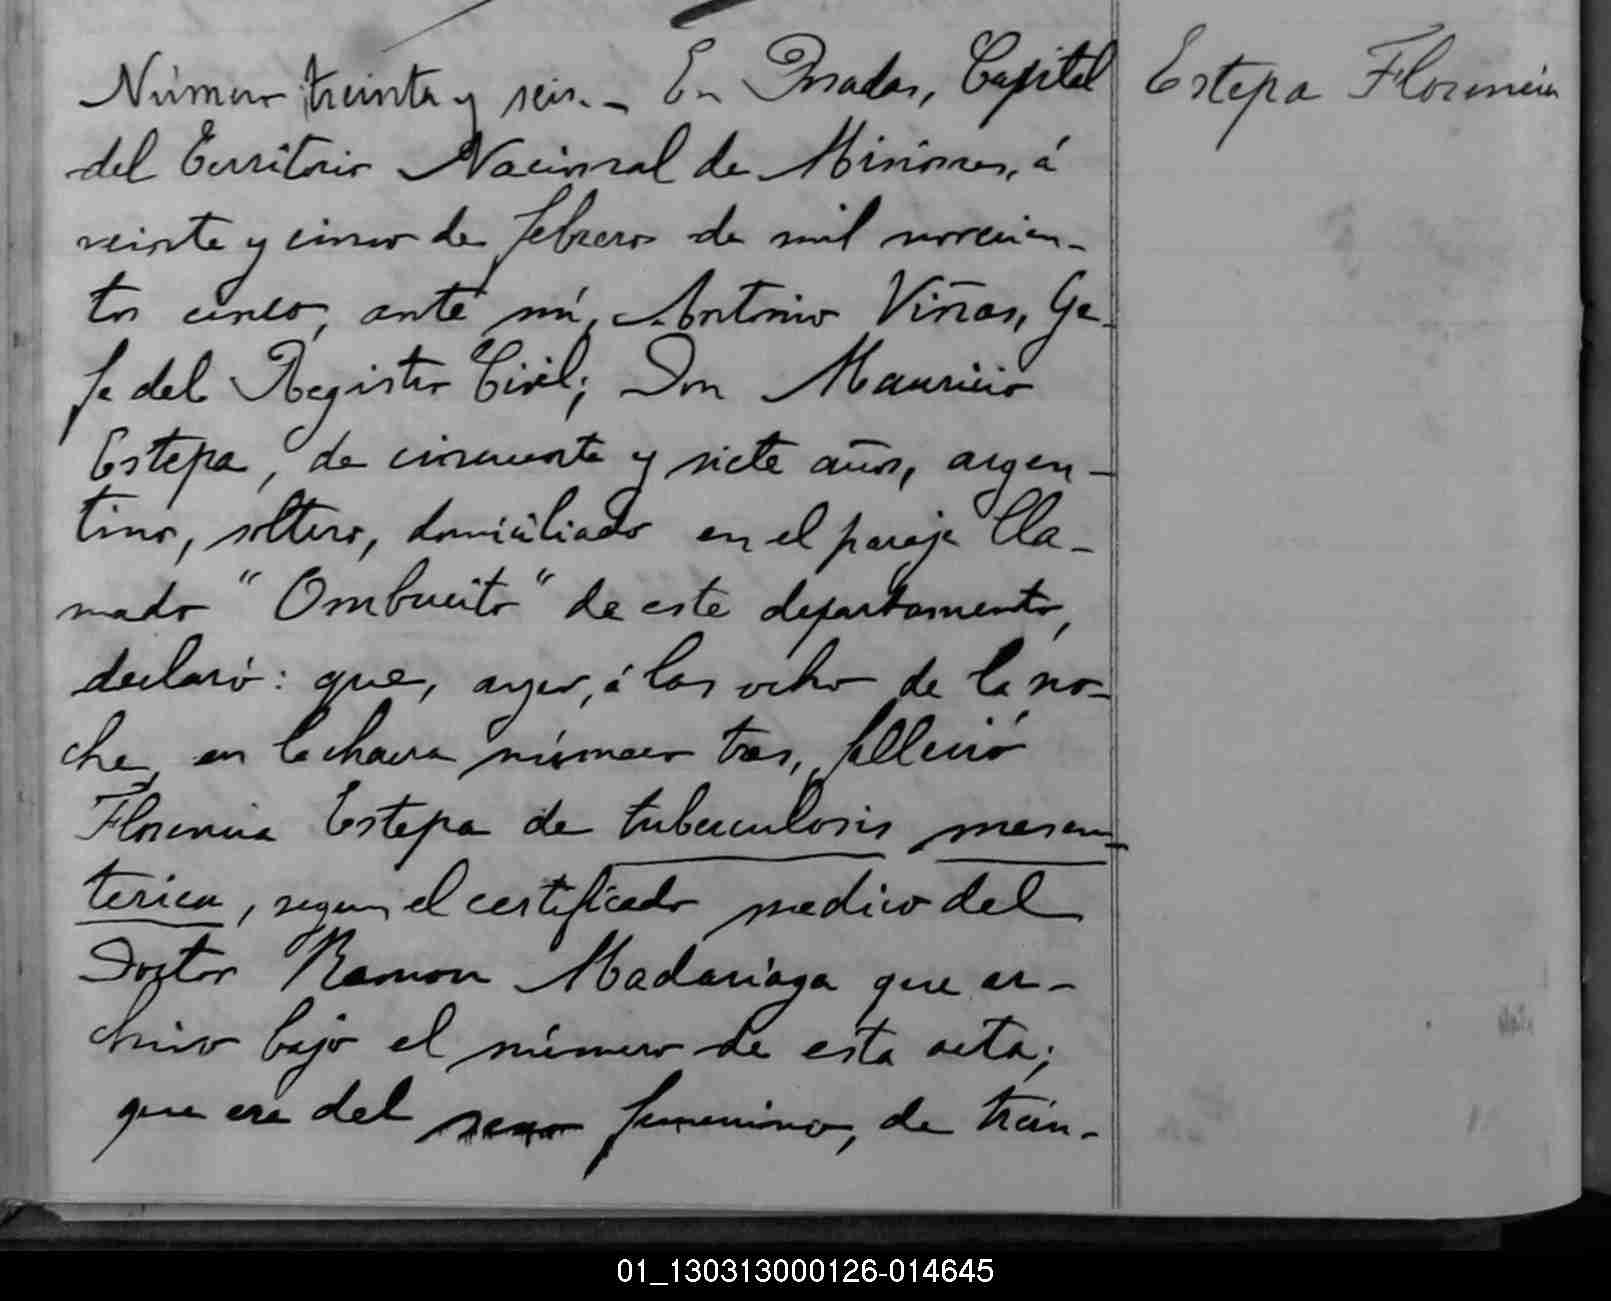 Número treinta y seis. – En Posadas, Capital
del Territorio Nacional de Misiones, á
veinte y cinco de febrero de mil novecien-
tos cinco, ante mí, Antonio Viñas, Ge-
fe del Registro Civil; Don Mauricio
Estepa, de cincuenta y siete años, argen-
tino, soltero, domiciliado en el paraje lla-
mado "Ombucito" de este departamento,
declaró: que, ayer, á las ocho de la no-
che, en la chacra número tres, falleció
Florencia Estepa de tuberculosis mesen-
terica, segun el certificado medico del
Doctor Ramon Madariaga que ar-
chivo bajo el número de esta acta;
que era del sexo femenino, de trein-
Estepa Florencia
01_130313000126-014645